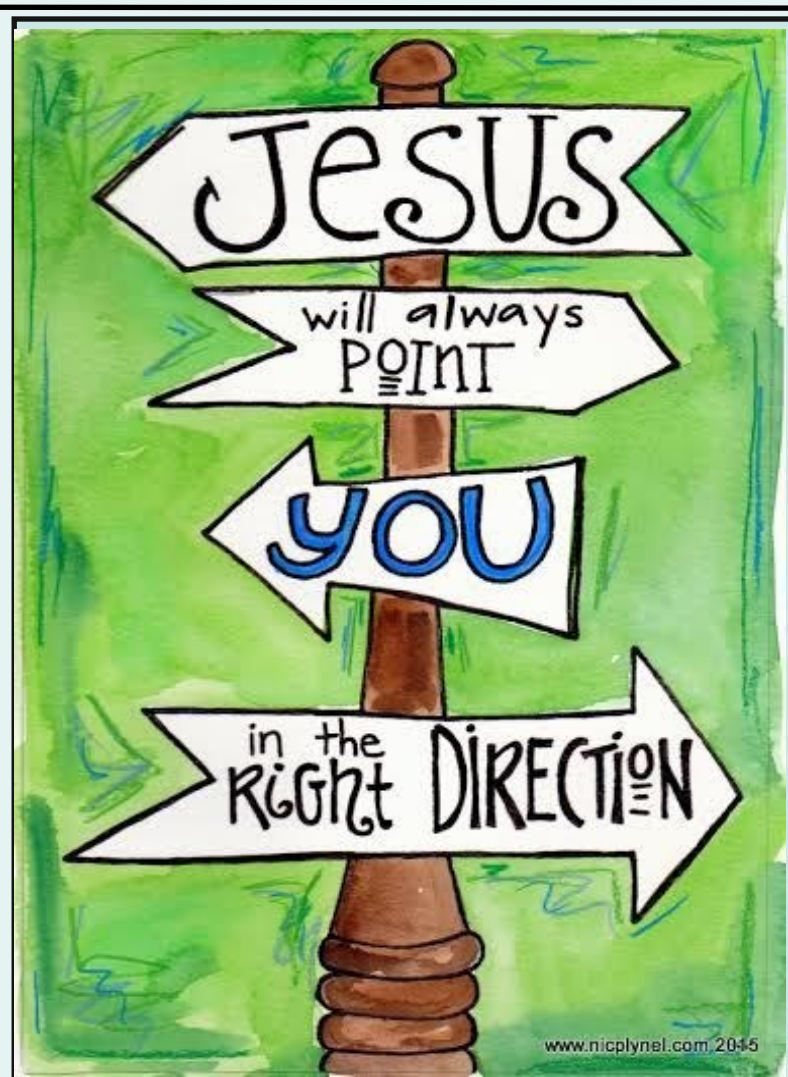 JeSUS
will always
POINT
YOU
in the
RiGht DiRECTiON
www.nicplynel.com 2015